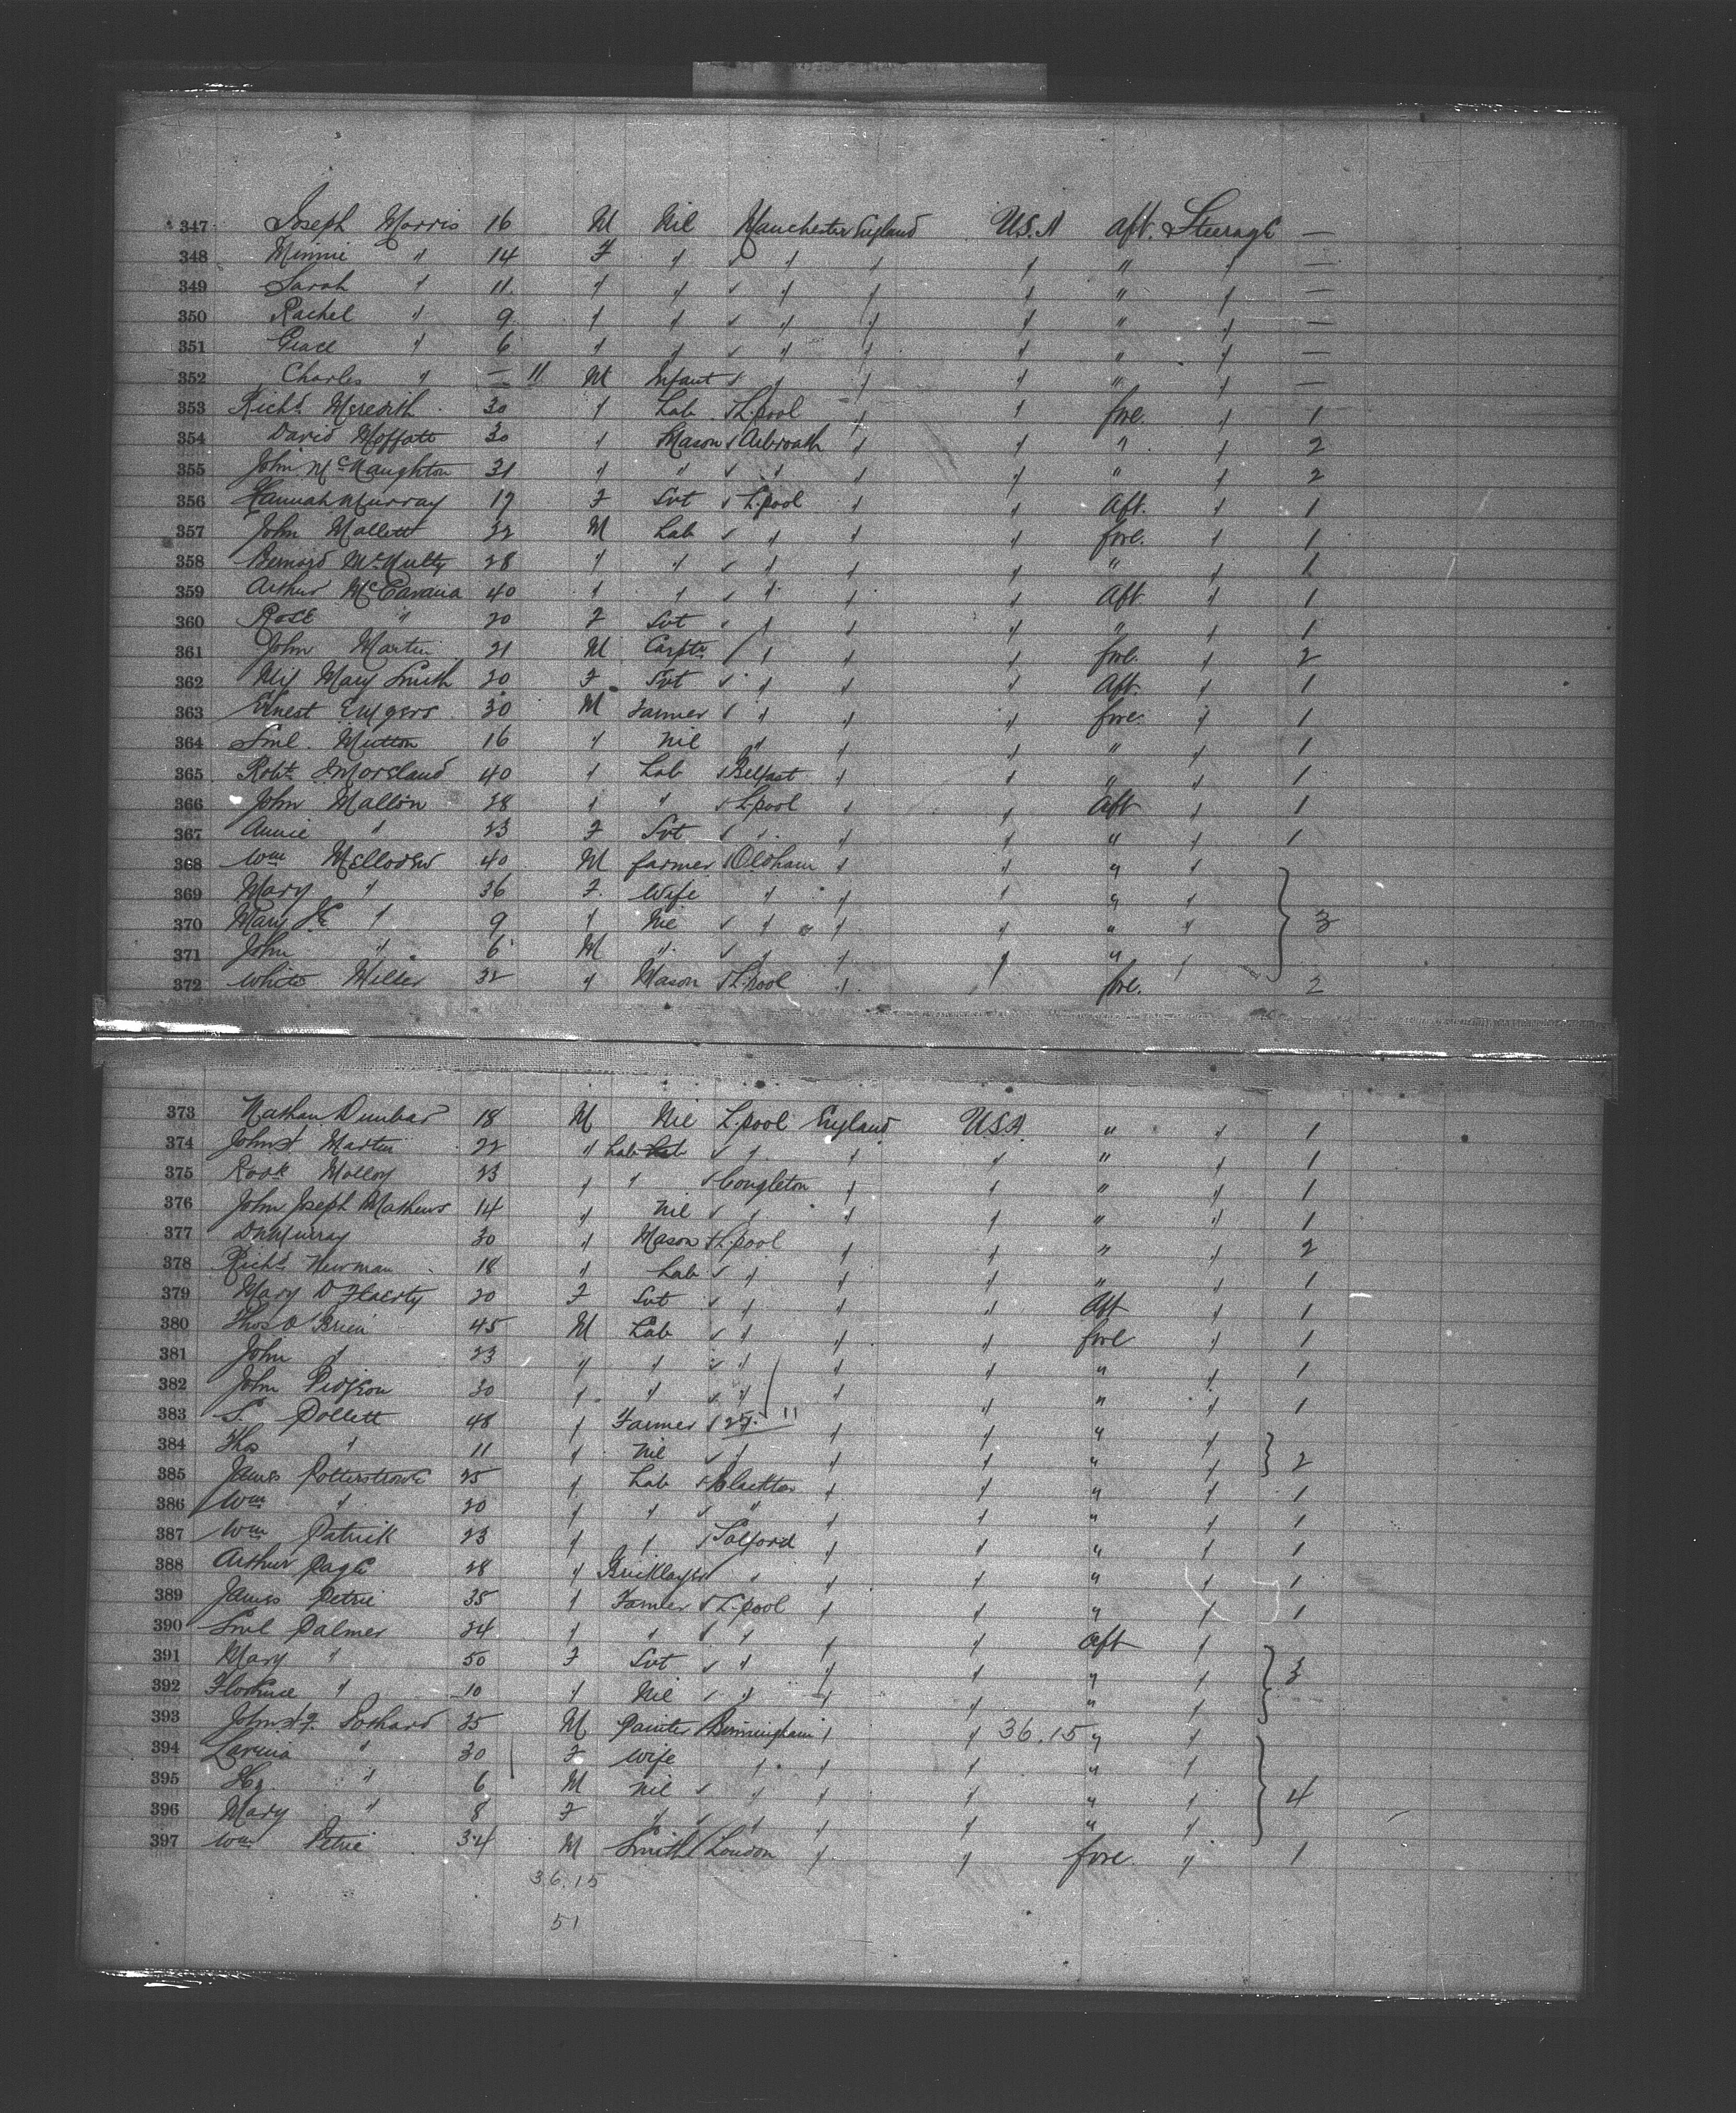 347 Joseph Morris 16 M Nil Manchester England U.S.A aft. Steerage —
348 Minnie " 14 F " " " " " " —
349 Sarah " 11 " " " " " " " —
350 Rachel " 9 " " " " " " " —
351 Grace " 6 " " " " " " " —
352 Charles " — 11 M Infant " " " " " —
353 Richd Meredith 30 " Lab L.pool " " fore. " 1
354 David Moffatt 30 " Mason Arbroath " " " " 2
355 John McNaughton 31 " " " " " " " 2
356 Hannah Murray 17 F Svt L.pool " " Aft. " 1
357 John Mallett 32 M Lab " " " fore. " 1
358 Bernard McNulty 28 " " " " " " " 1
359 Arthur McCavana 40 " " " " " Aft " 1
360 Rose " 20 F Svt " " " " " 1
361 John Martin 21 M Carptr " " " fore. " 2
362 Miss Mary Smith 20 F Svt " " " Aft. " 1
363 Ernest 30 M Farmer " " " fore. " 1
364 Saml. Mutton 16 " Nil " " " " " 1
365 Robt Moreland 40 " Lab Belfast " " " " 1
366 John Mallon 28 " " L.pool " " Aft " 1
367 Annie " 23 F Svt " " " " " 1
368 Wm Mellodew 40 M farmer Oldham " " " "
369 Mary " 36 F. Wife " " " " "
370 Mary " 9 " Nil " " " " " 3
371 John " 6 M " " " " " "
372 White Miller 32 " Mason L.pool " " fore. 2
373 Nathan Dunbar 18 M Nil L.pool England U.S.A. " " 1
374 John Martin 22 " Lab " " " " " 1
375 Molloy 23 " " Congleton " " " " 1
376 John Joseph Mathews 14 " Nil " " " " " 1
377 D Murray 30 " Mason L.pool " " " " 2
378 Richd Newman 18 " Lab " " " " " 1
379 Mary O Flaerty 20 F Svt " " " Aft " 1
380 Thos O Brien 45 M Lab " " " fore " 1
381 John " 23 " " " " " " " 1
382 John Pidgeon 30 " " " " " " " 1
383 S. Pollett 48 " Farmer 27. 11 " " " "
384 Thos " 11 " Nil " " " " " 2
385 James 25 " Lab " " " " 1
386 Wm " 20 " " " " " " " 1
387 Wm Patrick 23 " " Salford " " " " 1
388 Arthur Page 28 " Bricklayer " " " " " 1
389 James Petrie 35 " Farmer L.pool " " " " 1
390 Saml Palmer 24 " " " " " Aft "
391 Mary " 50 F Svt " " " " " 3
392 Florence " 10 " Nil " " " " "
393 John 35 M Painter Birmingham " " 36.15 " "
394 Lavinia " 30 F Wife " " " " "
395 Hy. " 6 M Nil " " " " " 4
396 Mary " 8 F " " " " " "
397 Wm Petrie 34 M Smith London " " fore. " 1
36.15
51